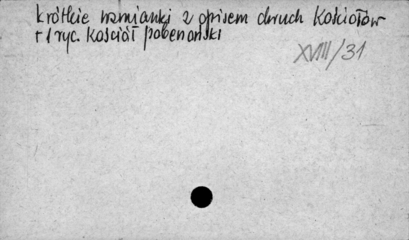 krótkie wzmianki z opisem dwuch Kościołów
+ 1 ryc. Kościół pobernarski
XVIII/31